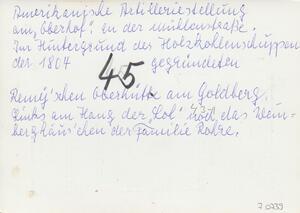 Amerikanische Artilleriestellung
am "Oberhof" in der Mühlenstraße.
Im Hintergrund des Holzkohlenschuppen
der 1804 gegründeten
45
Remy'schen Oberhütte am Goldberg
Links am Hang der "Loh" noch das Wein-
berghäus'chen der Familie Rohre.
7.0239